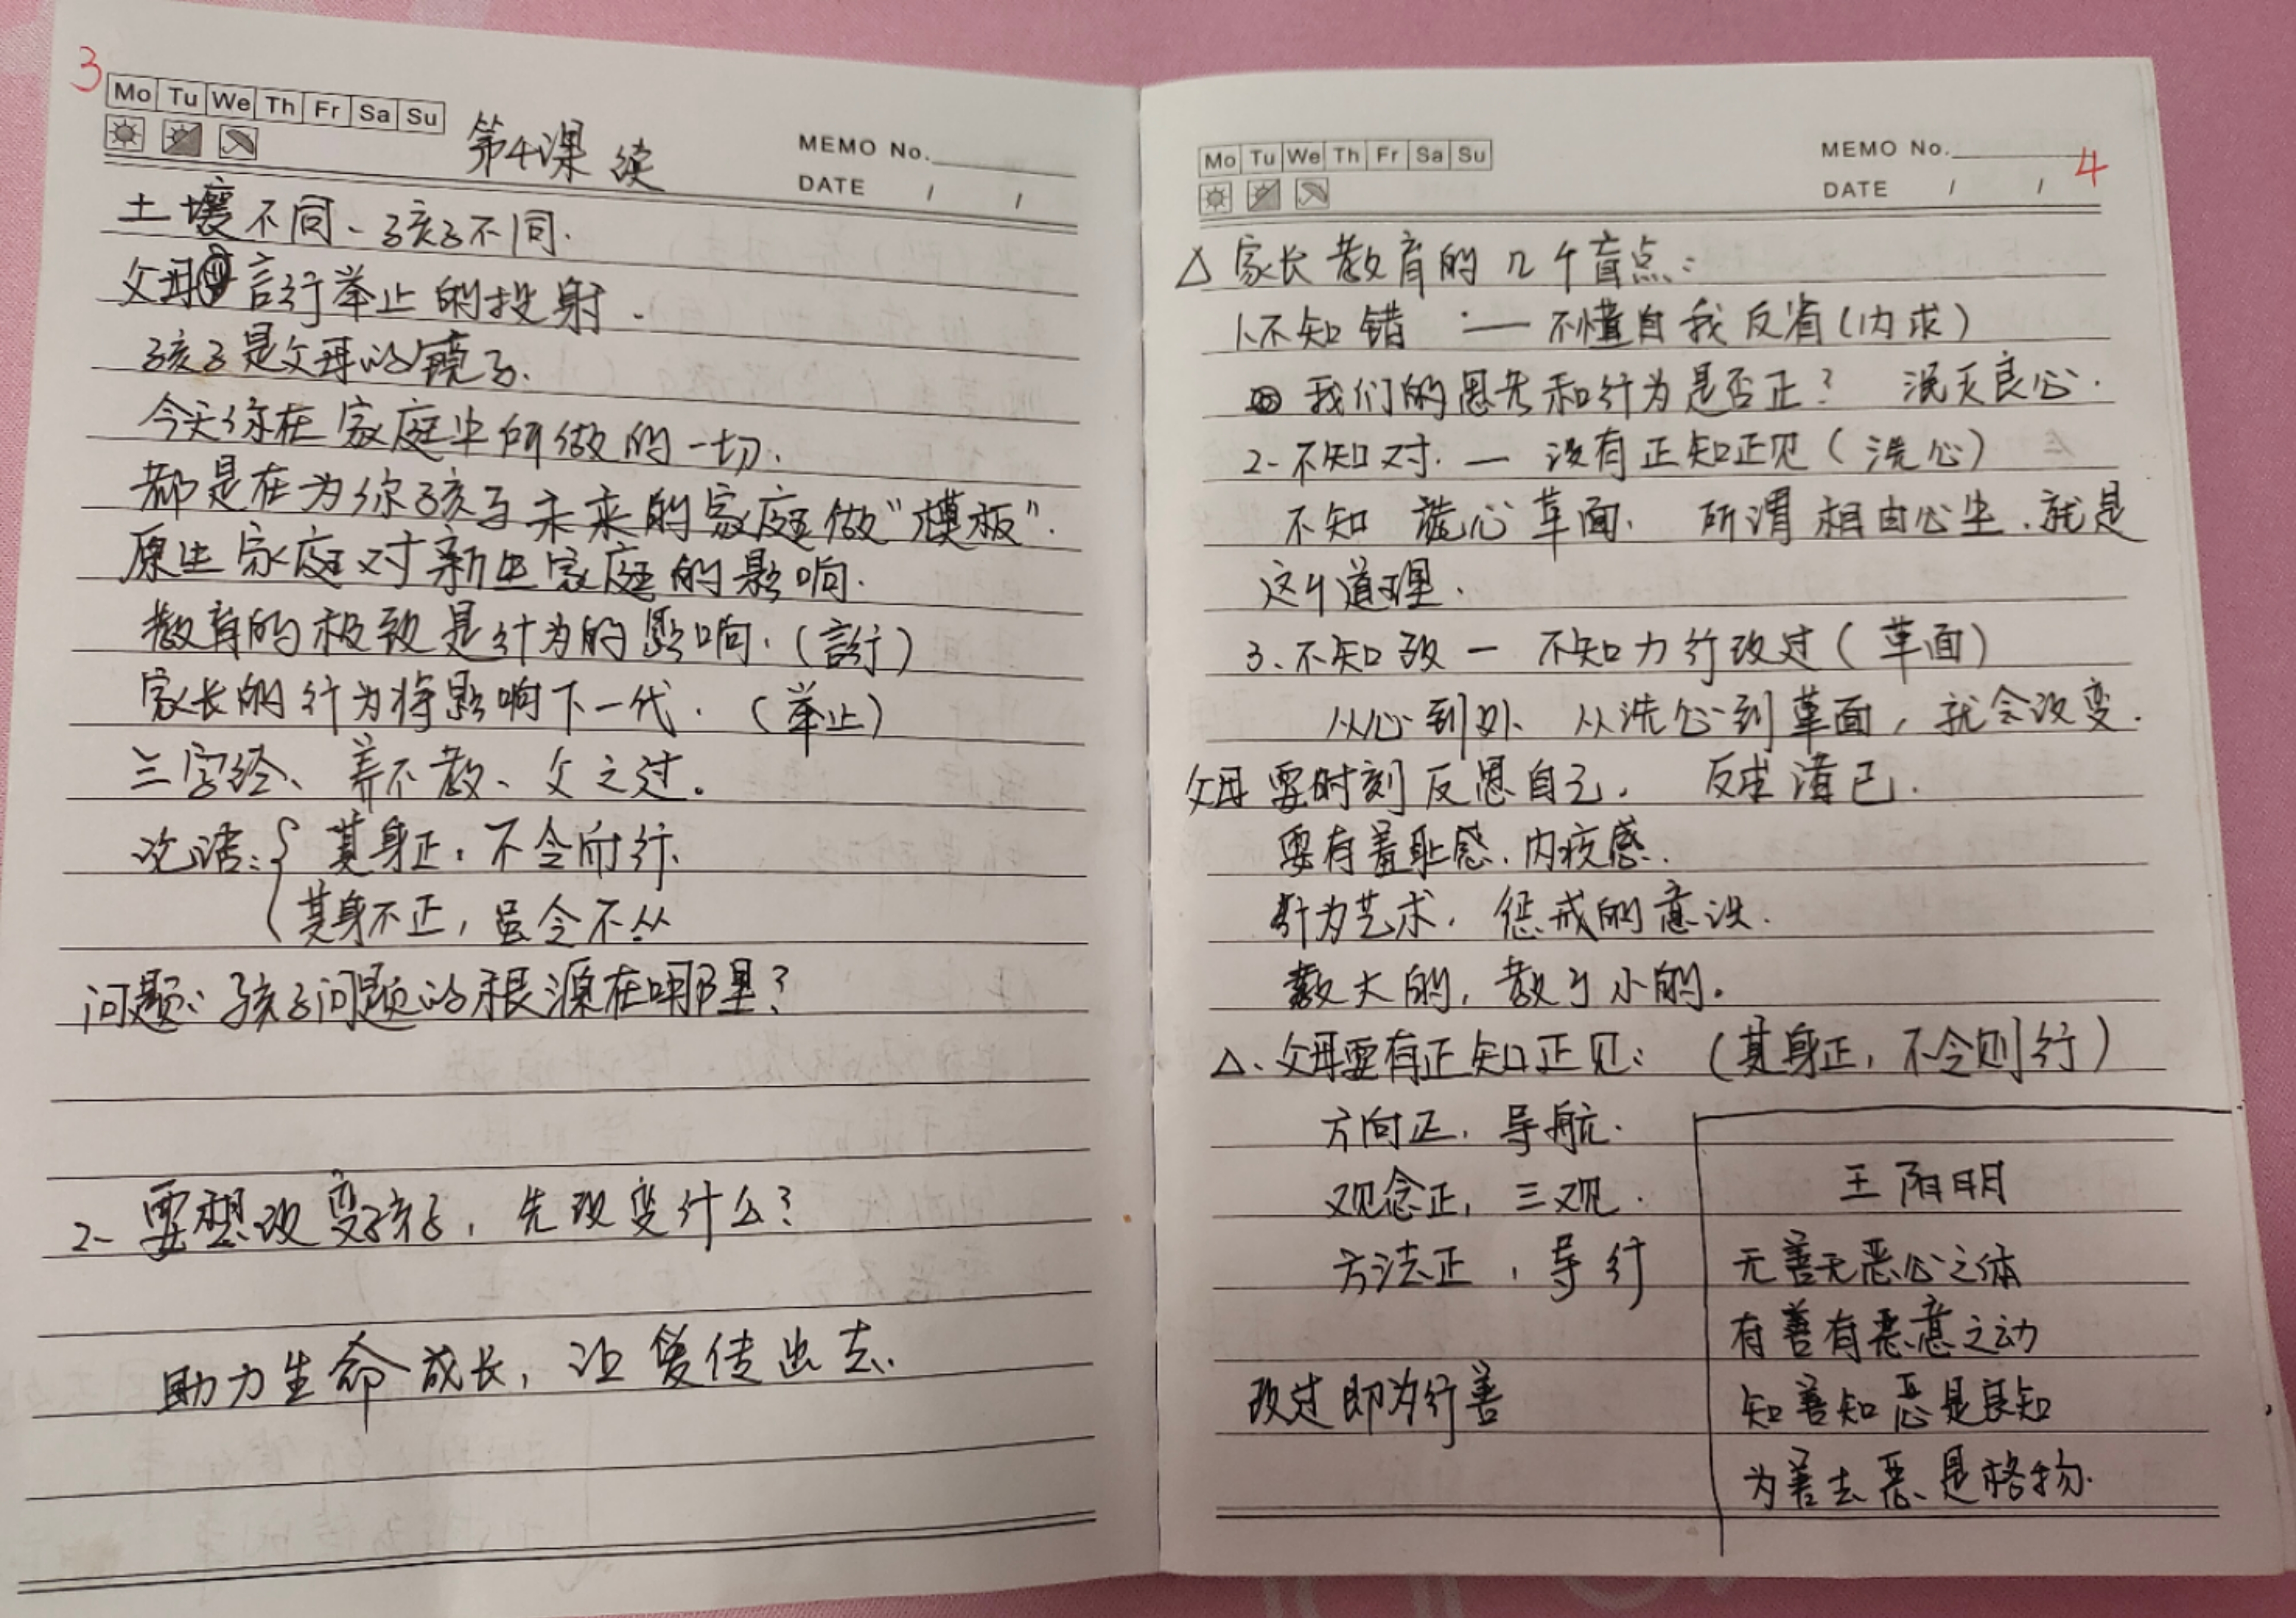 3
Mo Tu We Th Fr Sa Su
第4课 续
MEMO No.
DATE / /
土壤不同、孩子不同.
父母言行举止的投射.
孩子是父母的镜子.
今天你在家庭中所做的一切.
都是在为你孩子未来的家庭做“模板”.
原生家庭对新生家庭的影响.
教育的极致是行为的影响.(言行)
家长的行为将影响下一代.(举止)
三字经、养不教、父之过.
论语:{ 其身正.不令而行.
其身不正,虽令不从
问题:孩子问题的根源在哪里?
2- 要想改变孩子,先改变什么?
助力生命成长,让爱传出去.
Mo Tu We Th Fr Sa Su
MEMO No.
4
DATE / /
△家长教育的几个盲点:
1.不知错 — 不懂自我反省(内求)
我们的思考和行为是否正? 泯灭良心.
2-不知对.— 没有正知正见(洗心)
不知 洗心革面. 所谓相由心生.就是
这个道理.
3.不知改 — 不知力行改过(革面)
从心到外 从洗心到革面,就会改变.
父母要时刻反思自己. 反求诸己.
要有羞耻感.内疚感.
行为艺术. 惩戒的意识.
教大的,教于小的.
△、父母要有正知正见:(其身正,不令则行)
方向正.导航.
观念正,三观.
方法正,导行
改过即为行善
王阳明
无善无恶心之体
有善有恶意之动
知善知恶是良知
为善去恶是格物.